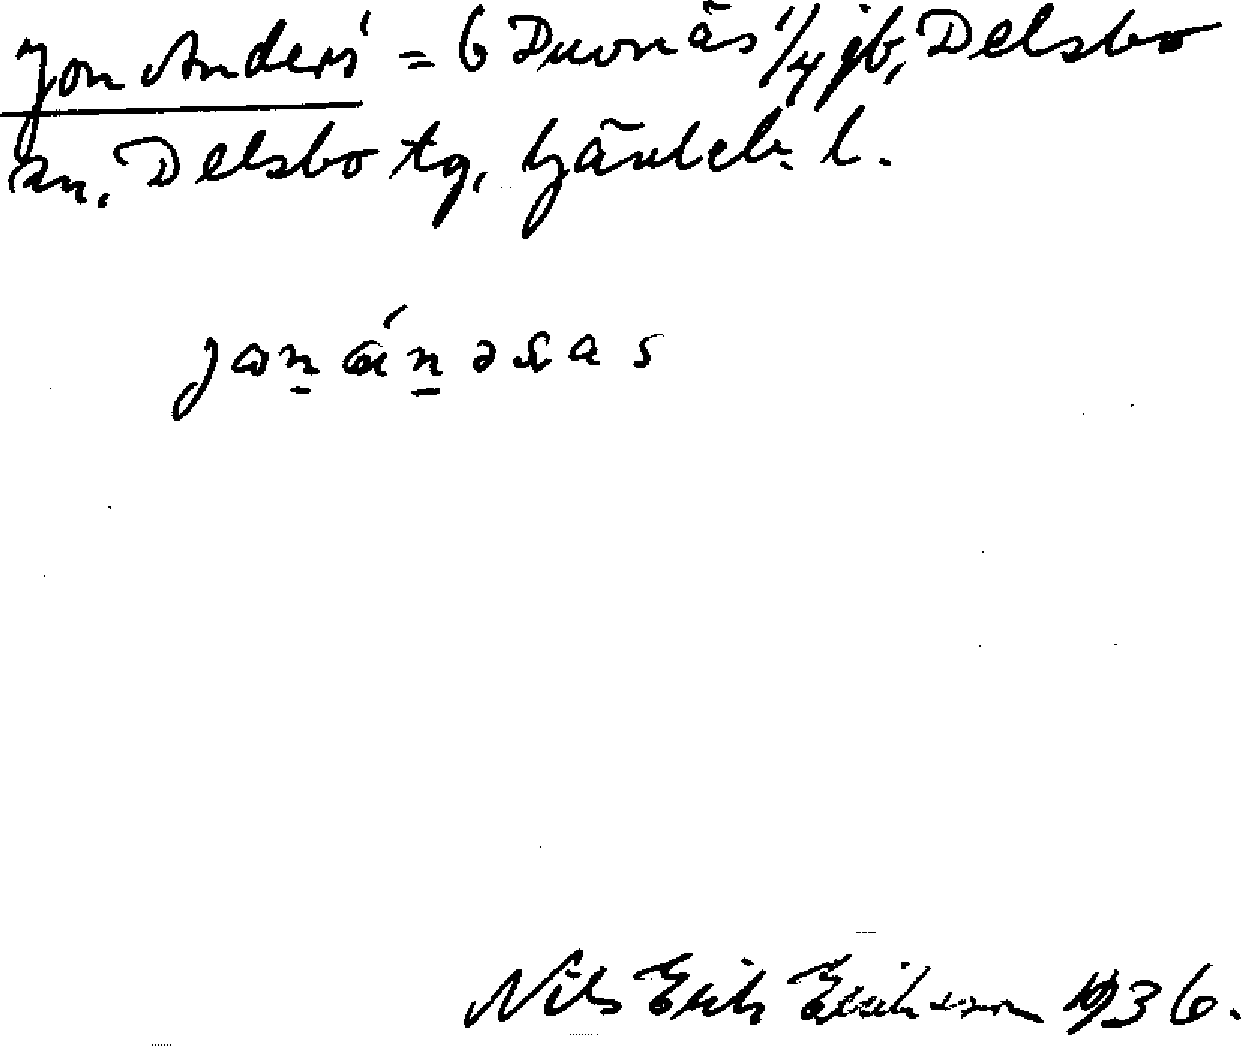 Jon Anders' = 6 Duvnäs 1/4 jb, Delsbo
sn, Delsbo tg, Gävleb. l.
Nils Erik Eriksson 1936.